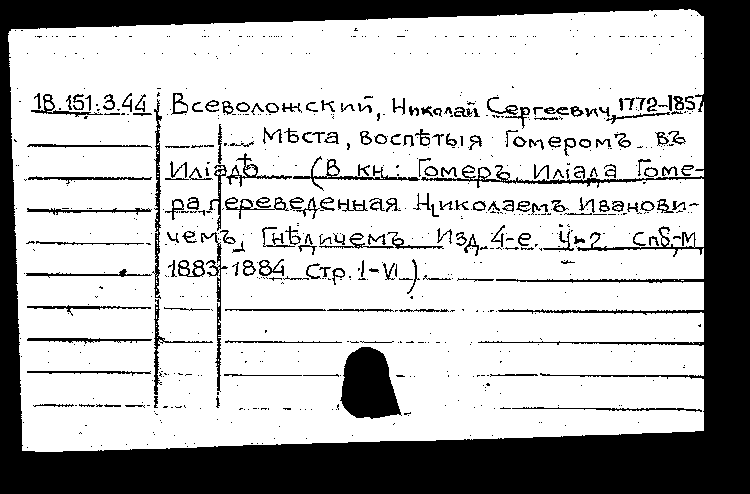 18.151.3.44 Всеволожский, Николай Сергеевич, 1772-1857
.... Мѣста, воспѣтыя Гомеромъ въ
Иліадѣ (В кн.: Гомеръ. Иліада Гоме-
ра, переведенная Николаемъ Иванови-
чемъ Гнѣдичемъ Изд. 4-е. Ч-2 Спб,-М,
1883-1884 стр. I-VI).